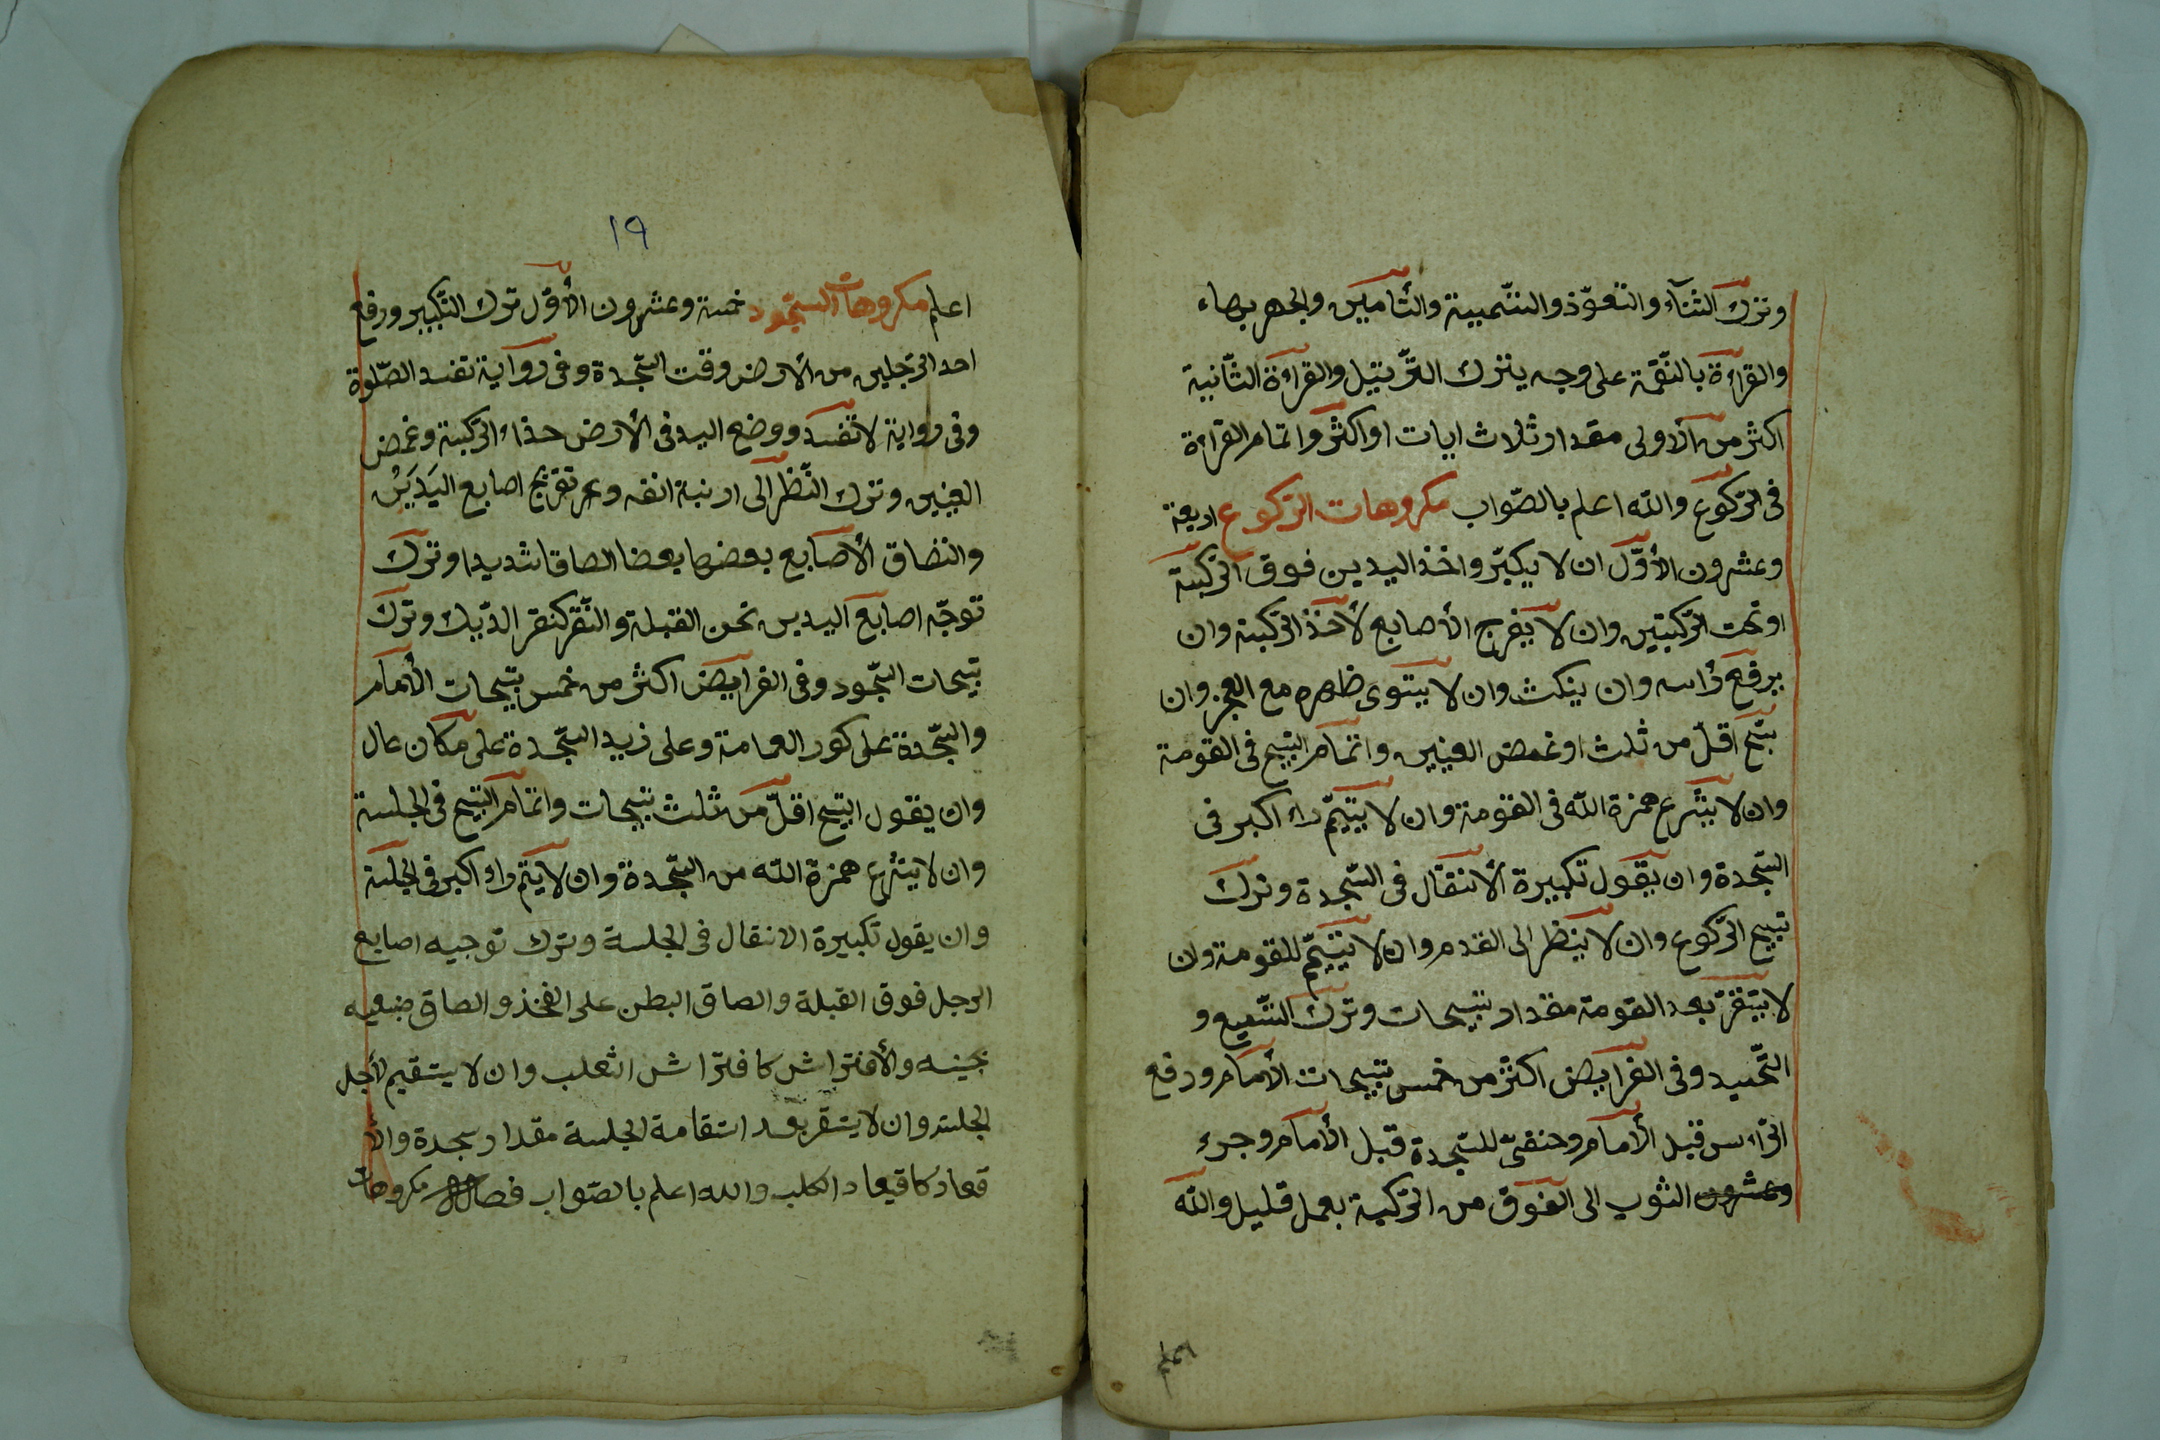 وترك الثنآء والتعوّذ والتّسمية والتّأمين والجهر بهاء
والقرآءة بالنّغمة على وجه يترك التّرتيل والقرآءة الثّانية
اكثر من الاولى مقدار ثلاث ايات او اكثر واتمام القرآءة
فى الرّكوع والله اعلم بالصّواب مكروهات الرّكوع اربعة
وعشرون الأوّل ان لا يكبّر واخذ اليدين فوق الرّكبة
او تحت الرّكبتين وان لا يفرج الأصابع لأخذ الرّكبة وان
يرفع رأسه وان ينكث وان لا يستوى ظهره مع العجز وان
يسبّح اقلّ من ثلث او غمض العينين واتمام التسبيح فى القومة
وان لا يشرع همزة الله فى القومة وان لا يتمّم راء اكبر فى
السّجدة وان يقول تكبيرة الأنتقال فى السّجدة وترك
تسبيح الرّكوع وان لا ينظر الى القدم وان لا يستتمّ للقومة وان
لا يستقرّ بعد القومة مقدار تسبيحات وترك التّسميع و
التّحميد وفى الفرايض اكثر من خمس تسبيحات الأمام ورفع
الرّاءس قبل الأمام وخفىّ للسّجدة قبل الأمام وجرء
وعشرون الثوب الى الفوق من الرّكبة بعمل قليل والله
اعلم
١٩
اعلم مكروهات السّجود خمسة وعشرون الأوّل ترك التّكبير ورفع
احد الرّجلين من الارض وقت السّجدة وفى رواية تفسد الصّلوة
وفى رواية لا تفسد ووضع اليد فى الأرض حذاء الرّكبة وغمض
العينين وترك النّظر الى ارنبة انفه وعم تفريج اصابع اليَدَيْن
والتضاق الأصابع بعضها بعضا الصاقا شديدا وترك
توجّه اصابع اليدين نحن القبلة والنّقر كنقر الدّيك وترك
تسبيحات السّجود وفى الفرايض اكثر من خمس تسبيحات الأمام
والسّجدة على كور العمامة وعلى زيد السّجدة على مكان عال
وان يقول التسبيح اقلّ من ثلث تسبيحات واتمام التسبيح فى الجلسة
وان لا يشرع همزة الله من السّجدة وان لا يتم راء اكبر فى الجلسة
وان يقول تكبيرة الانتقال فى الجلسة وترك توجيه اصابع
الرجل فوق القبلة والصاق البطن على الفخذ والصاق ضبعيه
بجنبه والأفتراش كافتراش الثعلب وان لا يستقيم لأجل
الجلسة وان لا يستقر بعد استقامة الجلسة مقدار سجدة والأ
قعاد كاقيعاد الكلب والله اعلم بالصّواب فصل مكروهات